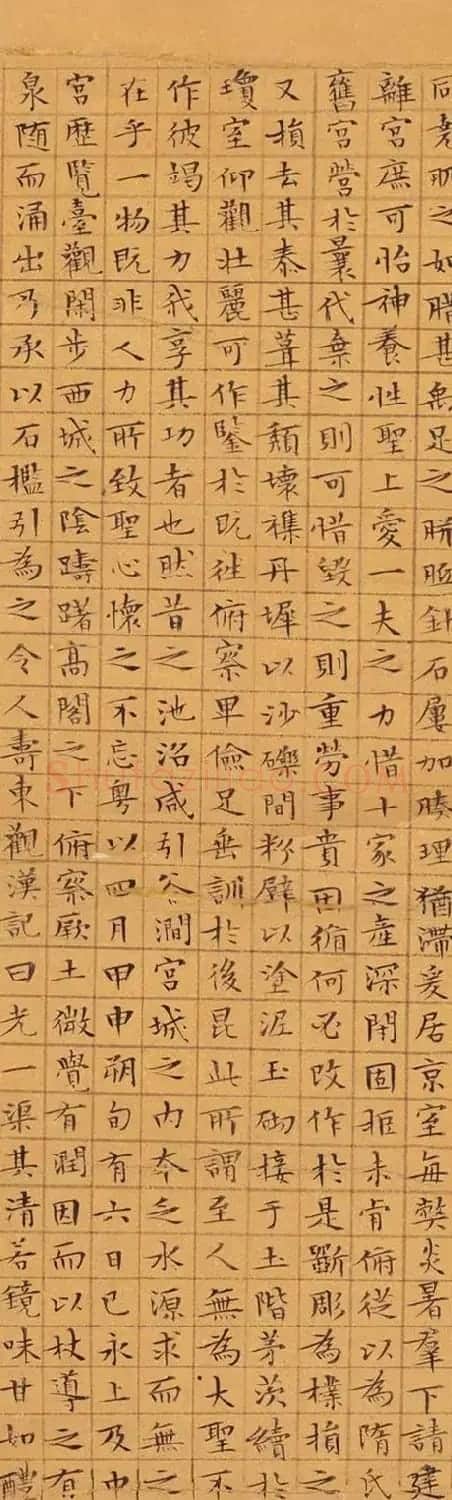 同堯肌之如腊甚禹足之胼胝針石屢加腠理猶滯爰居京室每弊炎暑羣下請建
離宮庶可怡神養性聖上愛一夫之力惜十家之產深閉固拒未肯俯從以為隋氏
舊宮營於曩代棄之則可惜毀之則重勞事貴因循何必改作於是斲彫為樸損之
又損去其泰甚葺其頹壞雜丹墀以沙礫間粉壁以塗泥玉砌接于土階茅茨續於
瓊室仰觀壯麗可作鑒於既往俯察卑儉足垂訓於後昆此所謂至人無為大聖不
作彼竭其力我享其功者也然昔之池沼咸引谷澗宮城之內本乏水源求而無之
在乎一物既非人力所致聖心懷之不忘粵以四月甲申朔旬有六日己亥上及中
宮歷覽臺觀閑步西城之陰躊躇高閣之下俯察厥土微覺有潤因而以杖導之有
泉随而涌出乃承以石檻引為之令人壽東觀漢記曰光一渠其清若鏡味甘如醴